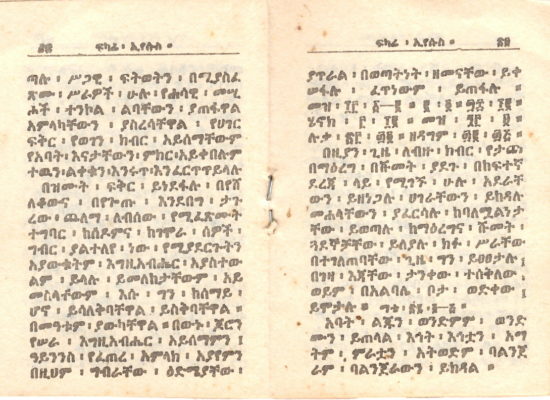 ፍካሬ ፡ ኢየሱስ ።
ጣሉ ፡ ሥጋዊ ፡ ፍትወትን ፡ በሚያስፈ
ጽሙ ፡ ሥራዎች ፡ ሁሉ ፡ የሐሳዊ ፡ መሢ
ሖች ፡ ተንኮል ፡ ልባቸውን ፡ ያጠፋዋል
አምላካቸውን ፡ ያስረሳቸዋል ፡ የሀገር
ፍቅር ፡ የወገን ፡ ክብር ፡ አይሰማቸውም
የአባት ፡ እናታቸውን ፡ ምክር ፡ አይቀበሉም
በዝሙት ፡ ፍቅር ፡ ይነደፋሉ ፡ በየሸ
ለቆውና ፡ በየጉጡ ፡ እንደበግ ፡ ታጉ
ረው ፡ ጨለማ ፡ ለብሰው ፡ የሚፈጽሙት
ተግባር ፡ ከሰዶምና ፡ ከገሞራ ፡ ሰዎች ፡
ግብር ፡ ያልተለየ ፡ ነው ፡ የሚያደርጉትን
አያውቁትም ፡ እግዚአብሔር ፡ አያስተው
ልም ፡ ይላሉ ፡ ይመለከታቸውም ፡ አይ
መስላቸውም ፡ እሱ ፡ ግን ፡ ከሰማይ ፡
ሆኖ ፡ ይሳለቅባቸዋል ፡ ይስቅባቸዋል ።
በመዓቱም ፡ ያውካቸዋል ። በውኑ ፡ ጆሮን
የሠራ ፡ እግዚአብሔር ፡ አይሰማምን ፤
ዓይንንስ ፡ የፈጠረ ፡ አምላክ ፡ አያየምን
በዚህም ፡ ግብራቸው ፡ ዕድሜያቸው ፡
ፍካሬ ፡ ኢየሱስ ።
ያጥራል ፡ በወጣትነት ፡ ዘመናቸው ፡ ይቀ
ወፋሉ ፡ ፈጥነውም ፡ ይጠፋሉ ።
መዝ ፡
ሄኖክ ፡ መዝ ፡
ሉቃ ፡ ዘዳግም ፡
በዚያን ፡ ጊዜ ፡ ለብዙ ፡ ክብር ፡ የታጩ
በማዕረግ ፡ በሹመት ፡ ያደጉ ፡ በከፍተኛ
ደረጃ ፡ ላይ ፡ የሚገኙ ፡ ሁሉ ፡ አደራቸ
ውን ፡ ይዘነጋሉ ፡ ሀገራቸውን ፡ ይከዳሉ
መሐላቸውን ፡ ያፈርሳሉ ፡ ከባለሟልነታ
ቸው ፡ ይወጣሉ ፡ ከማዕረግና ፡ ከሹመት ፡
ጓደኞቻቸው ፡ ይለያሉ ፡ ክፉ ፡ ሥራቸው ፡
በተገለጠባቸው ፡ ጊዜ ፡ ግን ፡
በገዛ ፡ እጃቸው ፡ ታንቀው ፡ ተሰቅለው ፤
ወይም ፡ በአልባሌ ፡ ቦታ ፡ ወድቀው ፤
ይሞታሉ ።
አባት ፡ ልጁን ፡ ወንድምም ፡ ወንድ
ሙን ፡ ይጠሳል ፡ እኅት ፡ እኅቷን ፡ እማ
ትም ፡ ምራቷን ፡ አትወድም ፡ ባልንጀ
ራም ፡ ባልንጀራውን ፡ ይከዳል ።